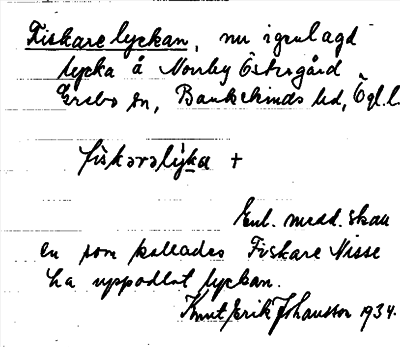 Fiskarelyckan, nu igenlagd
lycka å Norrby Östergård
Grebo sn, Bankekinds hd, Ögl.l.
fiskaralýka +
Enl. medd. skall
en som kallades Fiskare Nisse
ha uppodlat lyckan.
Knut Erik Johansson 1934.